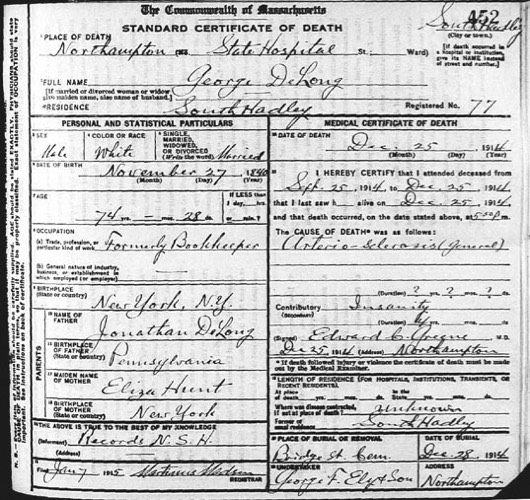 The Commonwealth of Massachusetts
STANDARD CERTIFICATE OF DEATH
452
South Hadley
(City or town.)
PLACE OF DEATH
Northampton State Hospital St.; Ward)
[If death occurred in a hospital or institution, give its NAME instead of street and number.]
FULL NAME George DeLong
[If married or divorced woman or widow give maiden name, also name of husband.]
RESIDENCE South Hadley
Registered No. 77
PERSONAL AND STATISTICAL PARTICULARS
SEX Male
COLOR OR RACE White
SINGLE, MARRIED, WIDOWED, OR DIVORCED (Write the word) Married
DATE OF BIRTH November 27 1840
(Month) (Day) (Year)
AGE 74 yrs. — mos. 28 ds.
If LESS than 1 day, hrs. or min.?
OCCUPATION
(a) Trade, profession, or particular kind of work Formerly Bookkeeper
(b) General nature of industry, business, or establishment in which employed (or employer)
BIRTHPLACE (State or country) New York, N.Y.
PARENTS
NAME OF FATHER Jonathan DeLong
BIRTHPLACE OF FATHER (State or country) Pennsylvania
MAIDEN NAME OF MOTHER Eliza Hunt
BIRTHPLACE OF MOTHER (State or country) New York
THE ABOVE IS TRUE TO THE BEST OF MY KNOWLEDGE
(Informant) Records N. S. H.
Filed Jan 7 1915
MEDICAL CERTIFICATE OF DEATH
DATE OF DEATH Dec. 25, 1914
(Month) (Day) (Year)
I HEREBY CERTIFY that I attended deceased from
Sept. 25, 1914, to Dec. 25 1914
that I last saw h alive on Dec. 25 1914
and that death occurred, on the date stated above, at m.
The CAUSE OF DEATH was as follows:
Arterio-Sclerosis (General)
(Duration) ? yrs. ? mos. ? ds.
Contributory (SECONDARY) Insanity
(Signed) Edward C. Greene M.D.
Dec. 25, 1914 (Address) Northampton
If death followed injury or violence the certificate of death must be made out by the Medical Examiner.
LENGTH OF RESIDENCE (FOR HOSPITALS, INSTITUTIONS, TRANSIENTS, OR RECENT RESIDENTS)
At place of death yrs. mos. ds. State yrs. mos. ds.
Where was disease contracted, if not at place of death? unknown
Former or usual residence South Hadley
PLACE OF BURIAL OR REMOVAL Bridge St. Cem.
DATE OF BURIAL Dec. 28, 1914
UNDERTAKER George F. Ely & Son
ADDRESS Northampton